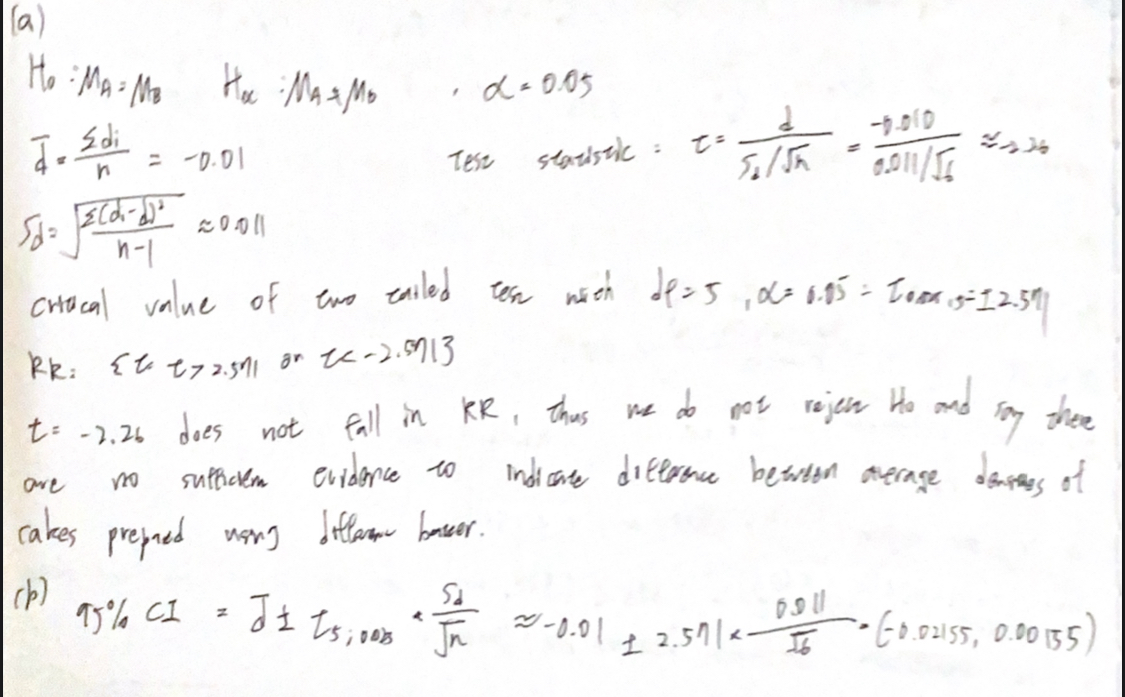 (a)
H₀ : M_A = M_B   H_α : M_A ≠ M_B   . α = 0.05
d̄ = Σdi / n = -0.01   Test statistic : t = d / (S_d/√n) = -0.010 / (0.011/√6) ≈ -2.26
S_d = √(Σ(di - d̄)² / (n-1)) ≈ 0.011
critical value of two tailed test with df = 5 , α = 0.05 = ± 2.571
RR: { t: t > 2.571 or t < -2.5713
t = -2.26 does not fall in RR, thus we do not reject H₀ and say there
are no sufficient evidence to indicate difference between average densities of
cakes prepared using batter.
(b)
95% CI = d̄ ± t₅,₀.₀₂₅ * S_d / √n ≈ -0.01 ± 2.571 × 0.011 / √6 = (-0.02155, 0.00155)